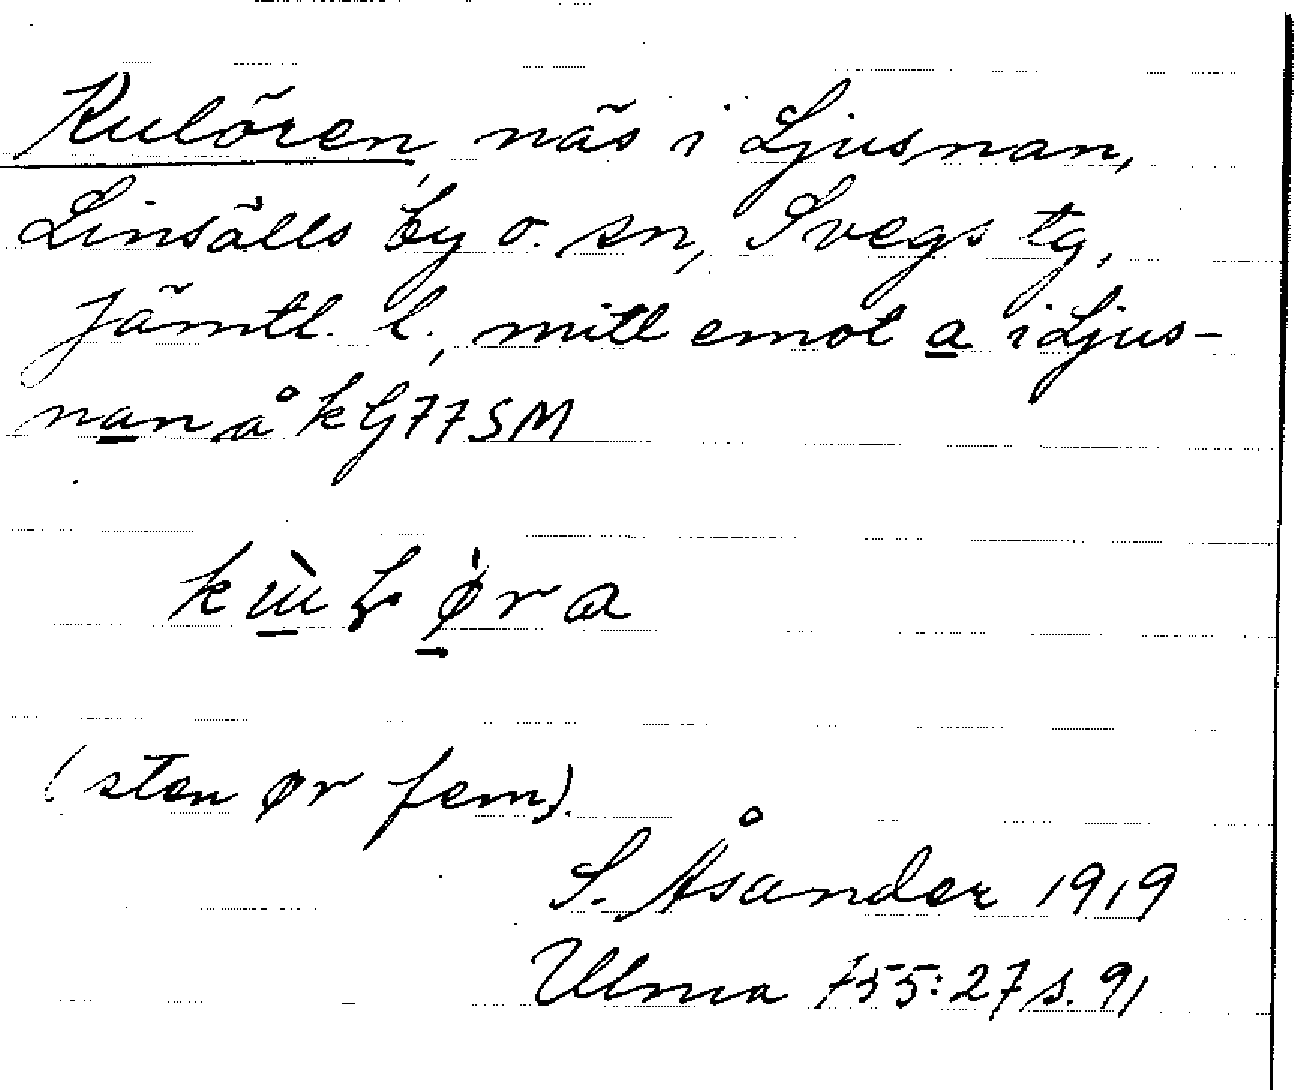 Kulören, näs i Ljusnan,
Linsälls by o. sn, Svegs tg,
Jämtl. l., mitt emot a i Ljus-
nan å kG77SM
(sten ør fem).
S. Åsander 1919
Ulma 755:27 s. 91